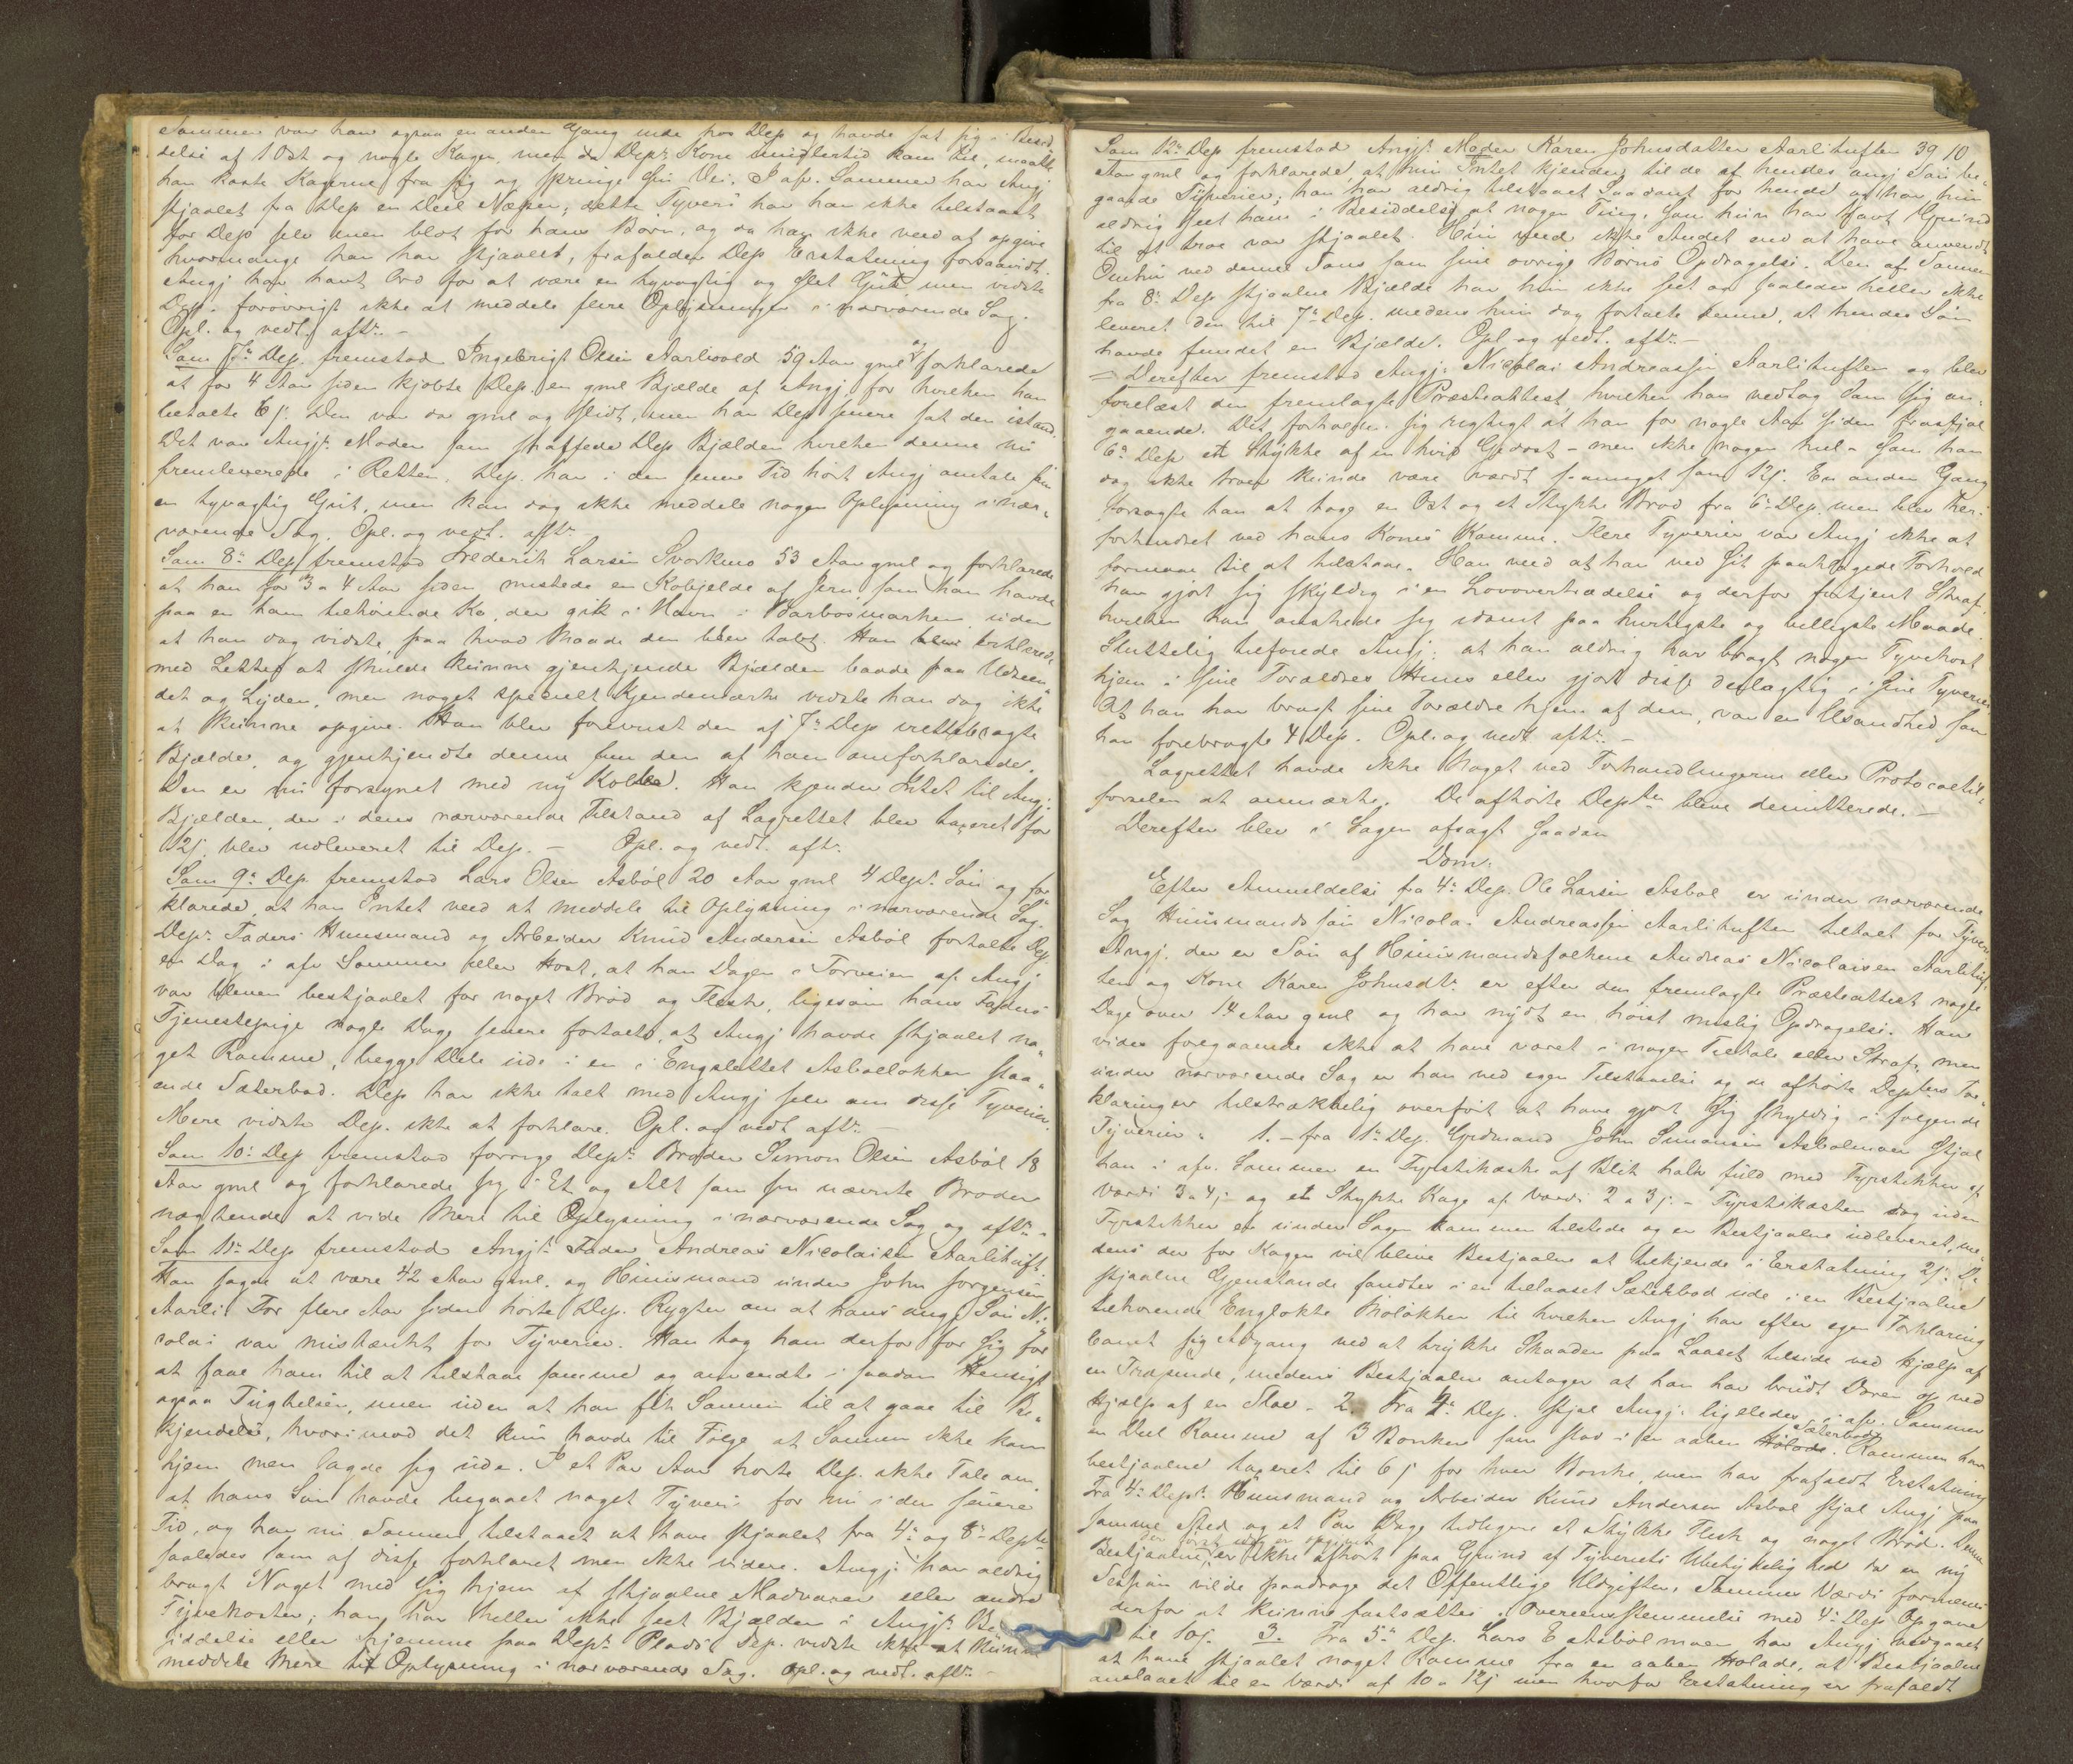 Sommer var han ogsaa en anden Gang inde hos Dep og havde sat sig i Besid
delse af 1 Ost og nogle Kager, men da Depts Kone imidlertid kom til, maatte
han kaste Kagerne fra sig og springe sin Vei. I afv. Sommer har Angj
stjaalet fra Dep en Deel Næper; dette Tyveri har han ikke tilstaaet
for Dep selv men blot for hans Børn, og da han ikke veed at opgive
hvormange han har stjaalet, frafalder Dep Erstatning forsaavidt.
Angj har havt Ord for at være en tyvagtig og slet Gut men vidste
Dep. forøvrigt ikke at meddele flere Oplysninger i nærværende Sag.
Opl. og vedt. aftr. -
Som 7de Dep. fremstod Ingebrigt Olsen Aarlivold 59 Aar gml og forklarede
at for 4 Aar siden kjøbte Dep. en gml Bjælde af Angj for hvilken han
betalte 6 s. Den var da gml og slidt, men har Dep senere sat den istand.
Det var Angjs Moder som skaffede Dep Bjælden hvilken denne nu
fremleverede i Retten. Dep. har i den senere Tid hørt Angj omtale som
en tyvagtig Gut, men kan dog ikke meddele nogen Oplysning i nær-
værende Sag. Opl. og vedt. aftr.
Som 8de Dep fremstod Frederik Larsen Svorkmo 53 Aar gml og forklarede
at han for 3 a 4 Aar siden mistede en Kobjelde af Jern som han havde
paa en ham tilhørende Ko, der gik i Havn i Barbosmarken, uden
at han dog vidste, paa hvad Maade den blev tabt. Han erklærede
med Lethed at skulde kunne gjenkjende Bjælden baade paa Udseen-
det og Lyden, men noget specielt Kjendemærke vidste han dog ikke
at kunne opgive. Han blev forevist den af 7de Dep rettebragte
Bjælde, og gjenkjendte denne som den af ham omforklarede.
Den er nu forsynet med ny Kolbe. Han kjender Intet til Angj.
Bjælden, der i dens nærværende Tilstand af Lagrettet blev taxeret for
12 s. blev udleveret til Dep. - Opl. og vedt. aftr.
Som 9de Dep. fremstod Lars Olsen Asbøl 20 Aar gml 4 Depts Søn og for
klarede, at han Intet veed at meddele til Oplysning i nærværende Sag.
Depts Faders Huusmand og Arbeider Knud Andersen Asbøl fortalte Dep
en Dag i afv Sommer eller Høst, at han Dagen i Forveien af Angj
var bleven bestjaalet for noget Brød og Flesk, ligesom hans Faders
Tjenestepige nogle Dage senere fortalte, at Angj havde stjaalet no-
get Rømme, begge Dele ude i en i Engslettet Asbølløkken staa-
ende Sæterbod. Dep har ikke talt med Angj selv om disse Tyverier.
Mere vidste Dep. ikke at forklare. Opl. og vedt aftr. -
Som 10de Dep fremstod forrige Depts Broder Simon Olsen Asbøl 18
Aar gml og forklarede sig i Et og Alt som sin nævnte Broder
nægtende at vide Mere til Oplysning i nærværende Sag og aftr. -
Som 11te Dep fremstod Angjts Fader Andreas Nicolaisen Aarlituft.
Han sagde at være 42 Aar gml. og Huusmand under John Jørgensen
Aarli. For flere Aar siden hørte Dep. Rygter om at hans angj Søn Ni-
colai var mistænkt for Tyverier. Han tog ham derfor for sig for
at faae ham til at tilstaae samme og anvendte i saadan Hensigt
ogsaa Tugtelser, men uden at han fik Sønnen til at gaae til Be-
kjendelse, hvorimod det kun havde til Følge at Sønnen ikke kom
hjem men lagde sig ude. I et Par Aar hørte Dep. ikke Tale om
at hans Søn havde begaaet noget Tyveri for nu i den senere
Tid, og har nu Sønnen tilstaaet at have stjaalet fra 4de og 8de Depter
saaledes som af disse forklaret men ikke videre. Angj. har aldrig
bragt Noget med sig hjem af stjaalne Madvarer eller andre
Tyvekoster; han har heller ikke seet Bjælden i Angjts Be-
siddelse eller hjemme paa Depts Plads. Dep. vidste ikke at kunne
meddele Mere til Oplysning i nærværende Sag. Opl. og vedt. aftr. -
Som 12te Dep fremstod Angjts Moder Karen Johnsdatter Aarlituften 39 10
Aar gml og forklarede, at hun Intet kjender til de af hendes angj Søn be-
gaaede Tyverier; han har aldrig tilstaaet Saadant for hende og har hun
aldrig seet ham i Besiddelse af nogen Ting, som hun har havt Grund
til at troe var stjaalet. Hun veed ikke Andet end at have anvendt
Omhu ved denne Søns som sine øvrige Børns Opdragelse. Den af Sønnen
fra 8de Dep stjaalne Bjælde har hun ikke seet og saaledes heller ikke
leveret den til 7de Dep. medens hun dog fortalte denne, at hendes Søn
havde fundet en Bjælde. Opl og vedt. aftr. -
= Derefter fremstod Angj. Nicolai Andreassen Aarlituften og blev
forelæst den fremlagte Præsteattest, hvilken han vedtog som sig an-
gaaende. Det forholder sig rigtigt at han for nogle Aar siden frastjal
6te Dep et Stykke af en hvid Gjedost - men ikke nogen heel - som han
dog ikke troer kunde være værdt saameget som 12 s. En anden Gang
forsøgte han at tage en Ost og et Stykke Brød fra 6te Dep. men blev heri
forhindret ved hans Kones Komme. Flere Tyverier var Angj ikke at
formaae til at tilstaae. Han veed at han ved sit paaklagede Forhold
har gjort sig skyldig i en Lovovertrædelse og derfor fortjent Straf
hvilken han ønskede sig idømt paa hurtigste og billigste Maade.
Sluttelig tilføiede Angj. at han aldrig har bragt nogen Tyvekost
hjem i sine Forældres Huus eller gjort disse deelagtig i sine Tyverier.
At han har bragt sine Forældre hjem af dem, var en Usandhed som
han forebragte 4 Dep. Opl. og vedt aftr. -
Lagrettet havde ikke Noget ved Forhandlingerne eller Protocoltil-
førselen at anmærke. De afhørte Depter bleve demitterede. -
Derefter blev i Sagen afsagt saadan
Dom:
Efter Anmeldelse fra 4de Dep. Ole Larsen Asbøl er under nærværende
Sag Huusmandssøn Nicolai Andreassen Aarlituften tiltalt for Tyveri.
Angj. der er Søn af Huusmandsfolkene Andreas Nicolaisen Aarlituf-
ten og Kone Karen Johnsdtr. er efter den fremlagte Præsteattest nogle
Dage over 14 Aar gml og har nydt en høist mislig Opdragelse. Han
vides foregaaende ikke at have været i nogen Tiltale eller Straf, men
under nærværende Sag er han ved egen Tilstaaelse og de afhørte Depters For-
klaringer tilstrækkelig overført at have gjort sig skyldig i følgende
Tyverier: 1. - fra 1ste Dep. Grdmand John Simonsen Asbølmoen stjal
han i afv. Sommer en Fyrstikæske af Blik halv fuld med Fyrstikker af
Værdi 3 a 4 s. og et Stykke Kage af Værdi 2 a 3 s. - Fyrstikæsken dog uden
Fyrstikker er under Sagen kommen tilstede og er Bestjaalne udleveret, me-
dens der for Kagen vil blive Bestjaalne at tilkjende i Erstatning 2 s. De
stjaalne Gjenstande fandtes i en tillaaset Sæterbod ude i en Bestjaalne
tilhørende Engløkke Moløkken til hvilken Angj. har efter egen Forklaring
banet sig Adgang ved at trykke Skaaden paa Laaset tilside ved Hjælp af
en Træpinde, medens Bestjaalne antager at han har brudt Døren op ved
Hjælp af en Stok. 2. Fra 4de Dep. stjal Angj. ligeledes i afv. Sommer
en Deel Rømme af 3 Bonker som stod i en aaben Sæterbod. Rømmen har
bestjaalne taxeret til 6 s for hver Bonke, men har frafaldt Erstatning
Fra 4de Depts Huusmand og Arbeider Knud Andersen Asbøl stjal Angj paa
samme Sted og et Par Dage tidligere et Stykke Flesk og noget Brød. Denne
Bestjaalne, er ikke afhørt paa Grund af Tyveriets Ubetydelighed da en ny
Session vilde paadrage det Offentlige Udgifter. Sammes Værdi formenes
derfor at kunne fastsættes i Overeensstemmelse med 4de Dep Opgave
til 10 s. 3. Fra 5te Dep. Lars E Asbølmoen har Angj vedgaaet
at have stjaalet noget Rømme fra en aaben Hølade, af Bestjaalne
anslaaet til en Værdi af 10 a 12 s men hvorfor Erstatning er frafaldt